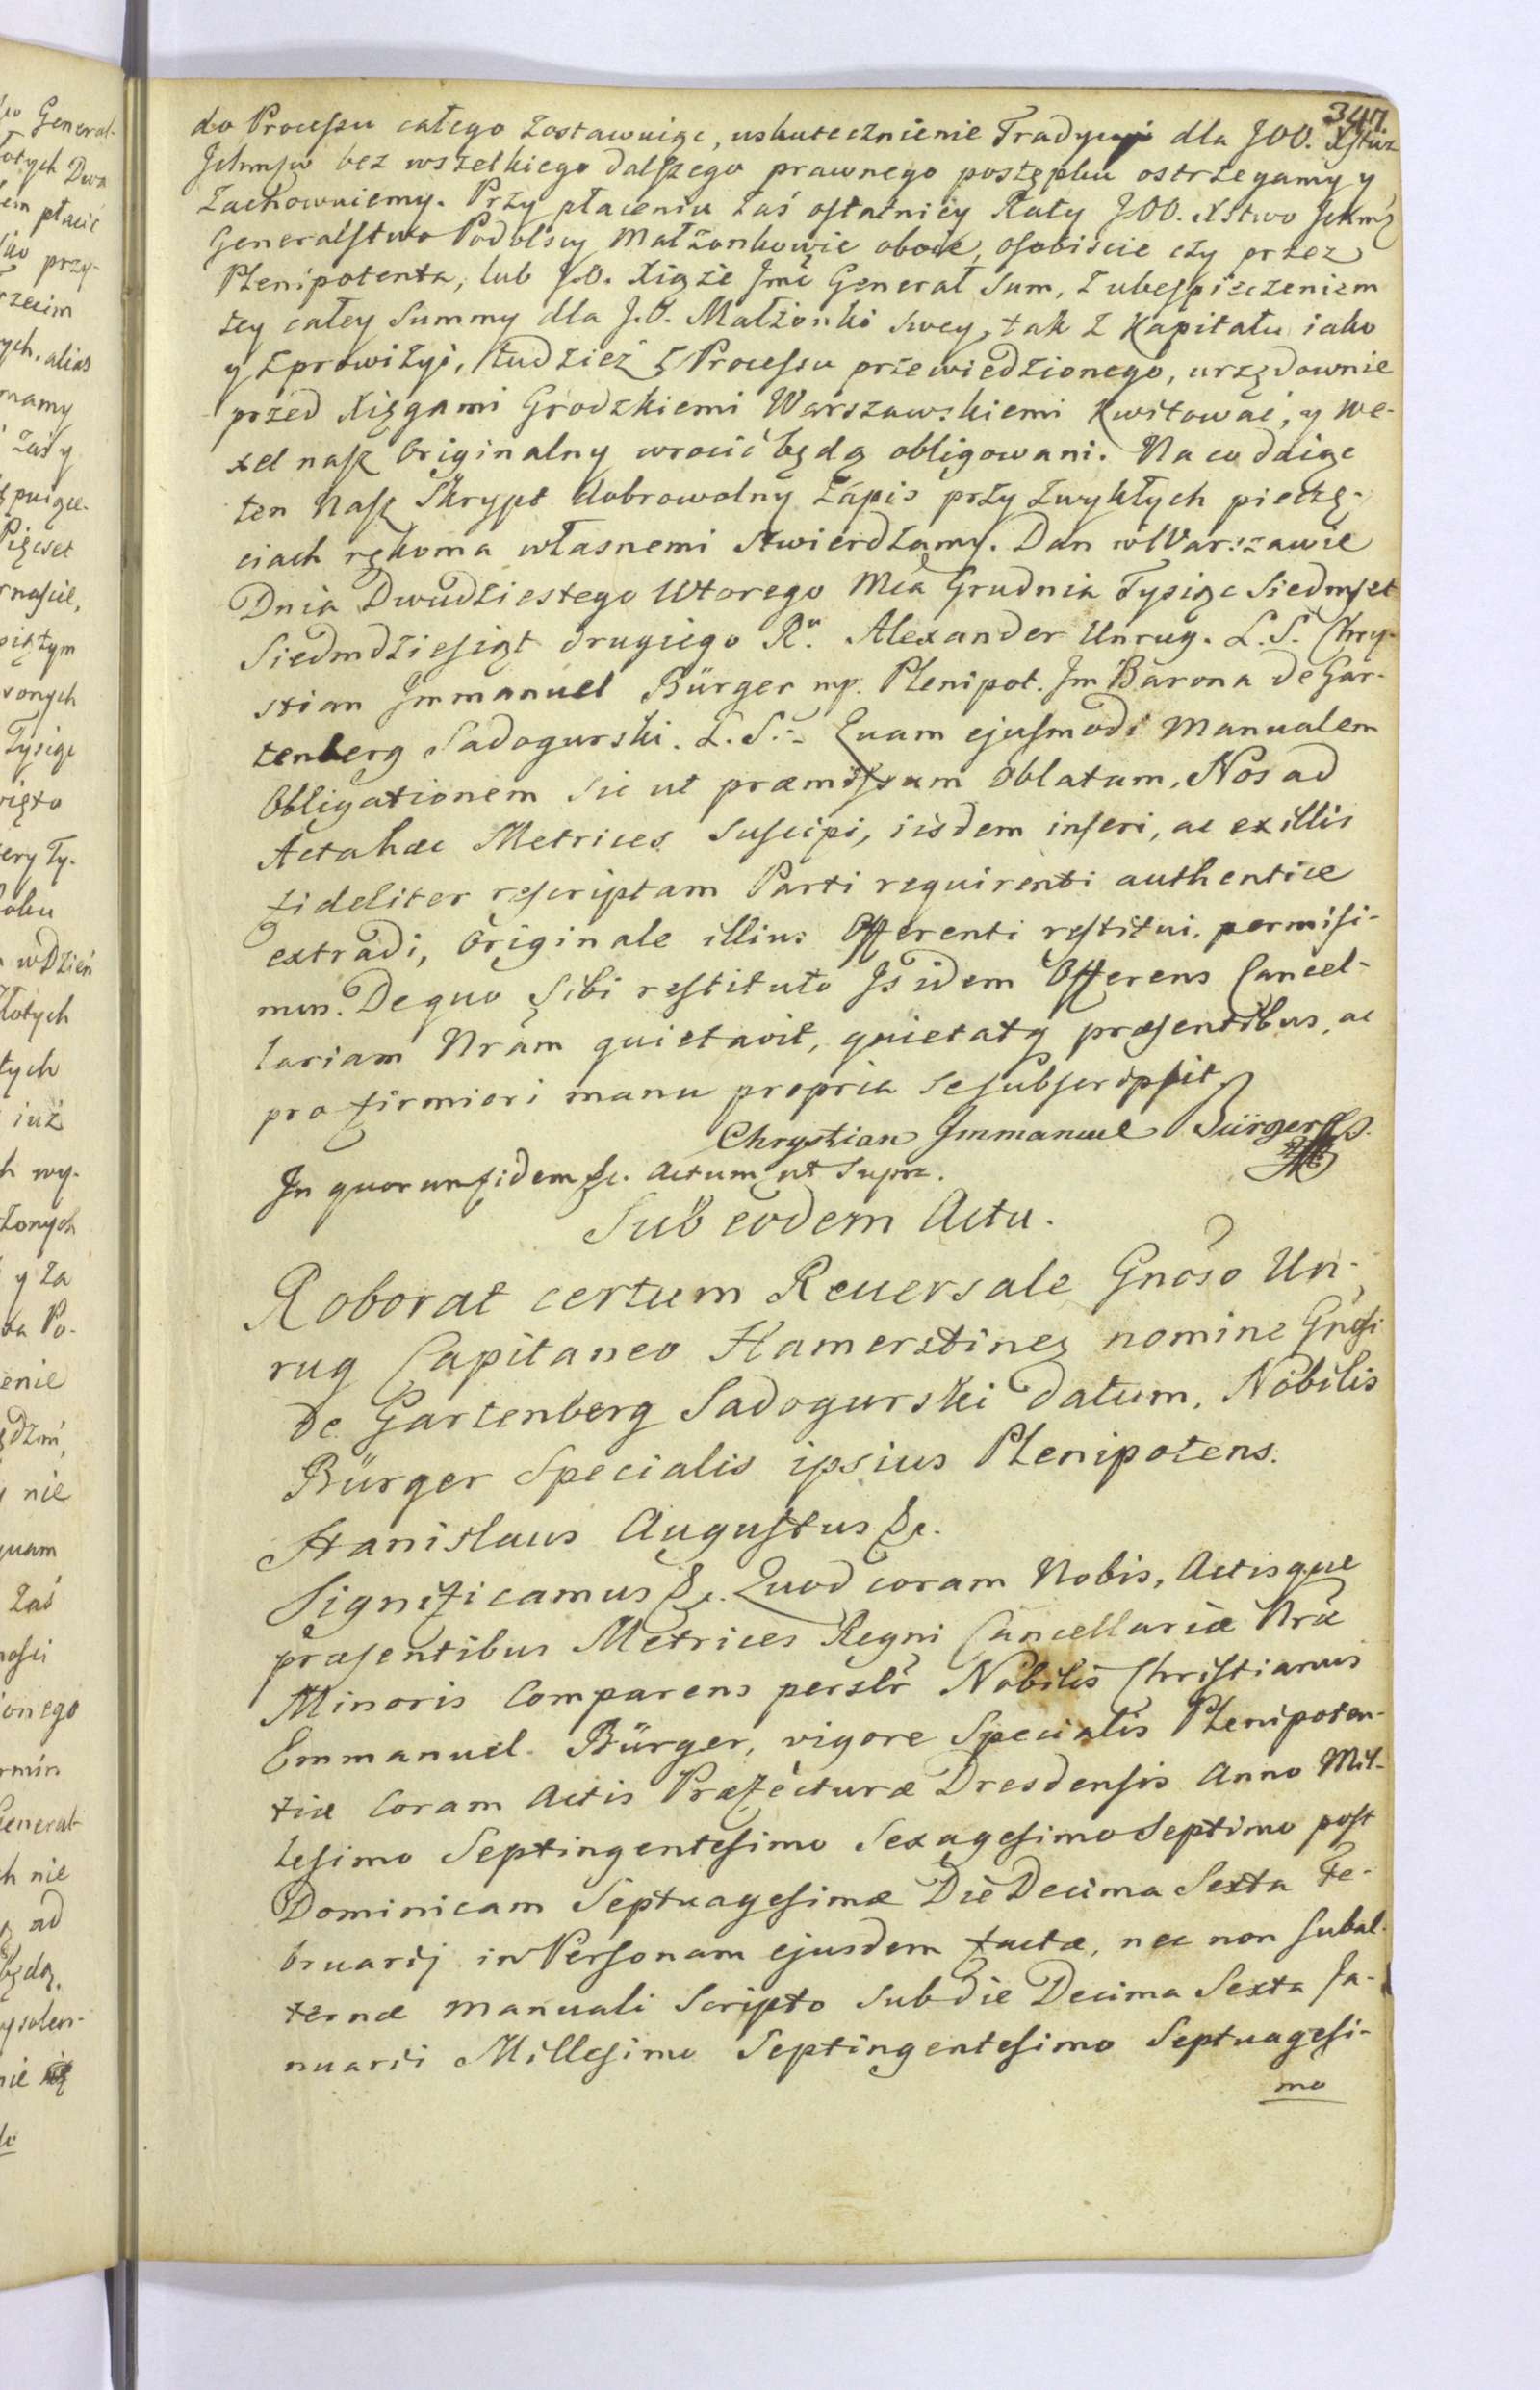 347
do Processu całego zostawuiąc, uskutecznienie Tradycyi dla JOO. Xstwa
Jchmsw bez wszelkiego dalszego prawnego postępku ostrzegamy y
zachowuiemy. Przy płaceniu zaś ostatniey Raty JOO. Xstwo Jchmć
Generalstwo Podolscy Małżonkowie oboie, osobiście czy przez
Plenipotenta, lub J.O. Xiąże Jmć Generał Sum, z ubespieczeniem
tey całey Summy dla J.O. Małżonki swey, tak z Kapitału iako
y z prowizyi, tudzież z Processu przewiedzionego, urzędownie
przed Xięgami Grodzkiemi Warszawskiemi Kwitować, y we-
xel nasz Originalny wrocić będą obligowani. Na co daiąc
ten Nasz Skrypt dobrowolny Zapis przy zwykłych pieczę-
ciach rękoma własnemi stwierdzamy. Dan w Warszawie
Dnia Dwudziestego Wtorego Mca Grudnia Tysiąc Siedmset
Siedmdziesiąt drugiego Ru. Alexander Unrug. L.S. Chry-
stian Jmmanuel Bürger mp. Plenipot. Jm Barona de Gar-
tenberg Sadogurski. L.S.:- Quam ejusmodi Manualem
Obligationem sic ut præmissum oblatam, Nos ad
Acta hæc Metrices suscipi, iisdem inseri, ac ex illis
fideliter rescriptam Parti requirenti authentice
extradi, Originale illius Offerenti restitui, permisi-
mus. De quo sibi restituto Jsidem Offerens Cancel-
lariam Nram quietavit, quietatq præsentibus, ac
pro firmiori manu propria se subscripsit.
Chrystian Jmmanuel Bürger
Jn quorum fidem &c. Actum ut Supra.
Sub eodem Actu.
Roborat certum Reuersale Gnoso Un-
rug Capitaneo Hamerstineñ nomine Gnosi
de Gartenberg Sadogurski datum, Nobilis
Bürger Specialis ipsius Plenipotens.
Stanislaus Augustus &c.
Significamus &c. Quod coram Nobis, Actisque
præsentibus Metrices Regni Cancellariæ Nræ
Minoris Comparens perslr Nobilis Christianus
Emmanuel Bürger, vigore Specialis Plenipoten-
tiæ Coram Actis Præfecturæ Dresdensis Anno Mil-
lesimo Septingentesimo Sexagesimo Septimo post
Dominicam Septuagesimæ Die Decima Sexta Fe-
bruarij in Personam ejusdem factæ, nec non subal-
ternæ manuali Scripto sub die Decima Sexta Ja-
nuarii Millesimo Septingentesimo Septuagesi-
mo